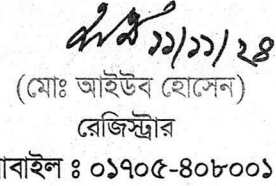 ১১/১১/২৪
(মোঃ আইউব হোসেন)
রেজিস্ট্রার
াবাইল ঃ ০১৭০৫-৪০৮০০১